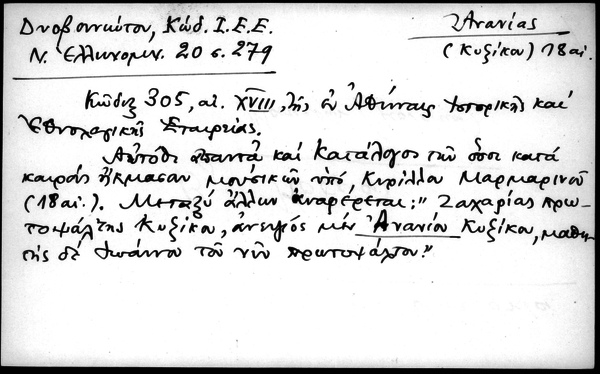 Δυοβουνιώτου, Κώδ. Ι.Ε.Ε.
Ν. Ἑλληνομν. 20 σ. 279
Ἀνανίας
(Κυζίκου) 18 αἰ.
Κῶδιξ 305, αἰ. XVIII, τῆς ἐν Ἀθήναις Ἱστορικῆς καὶ
Ἐθνολογικῆς Ἑταιρείας.
Αὐτόθι ἀπαντᾷ καὶ κατάλογος τῶν ὅσοι κατὰ
καιροὺς ἤκμασαν μουσικῶν ὑπὸ Κυρίλλου Μαρμαρινοῦ
(18 αἰ.). Μεταξὺ ἄλλων ἀναφέρεται: "Ζαχαρίας πρω-
τοψάλτης Κυζίκου, ἀνεψιὸς μὲν Ἀνανίου Κυζίκου, μαθη-
τὴς δὲ Ἰωάννου τοῦ νῦν πρωτοψάλτου."